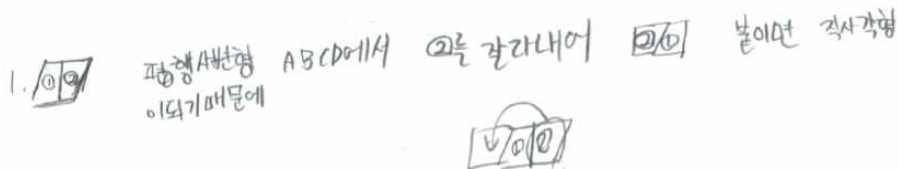 1. ① ② 평행사변형 ABCD에서 ②를 잘라내어 ② ① 붙이면 직사각형
이되기때문에
① ②